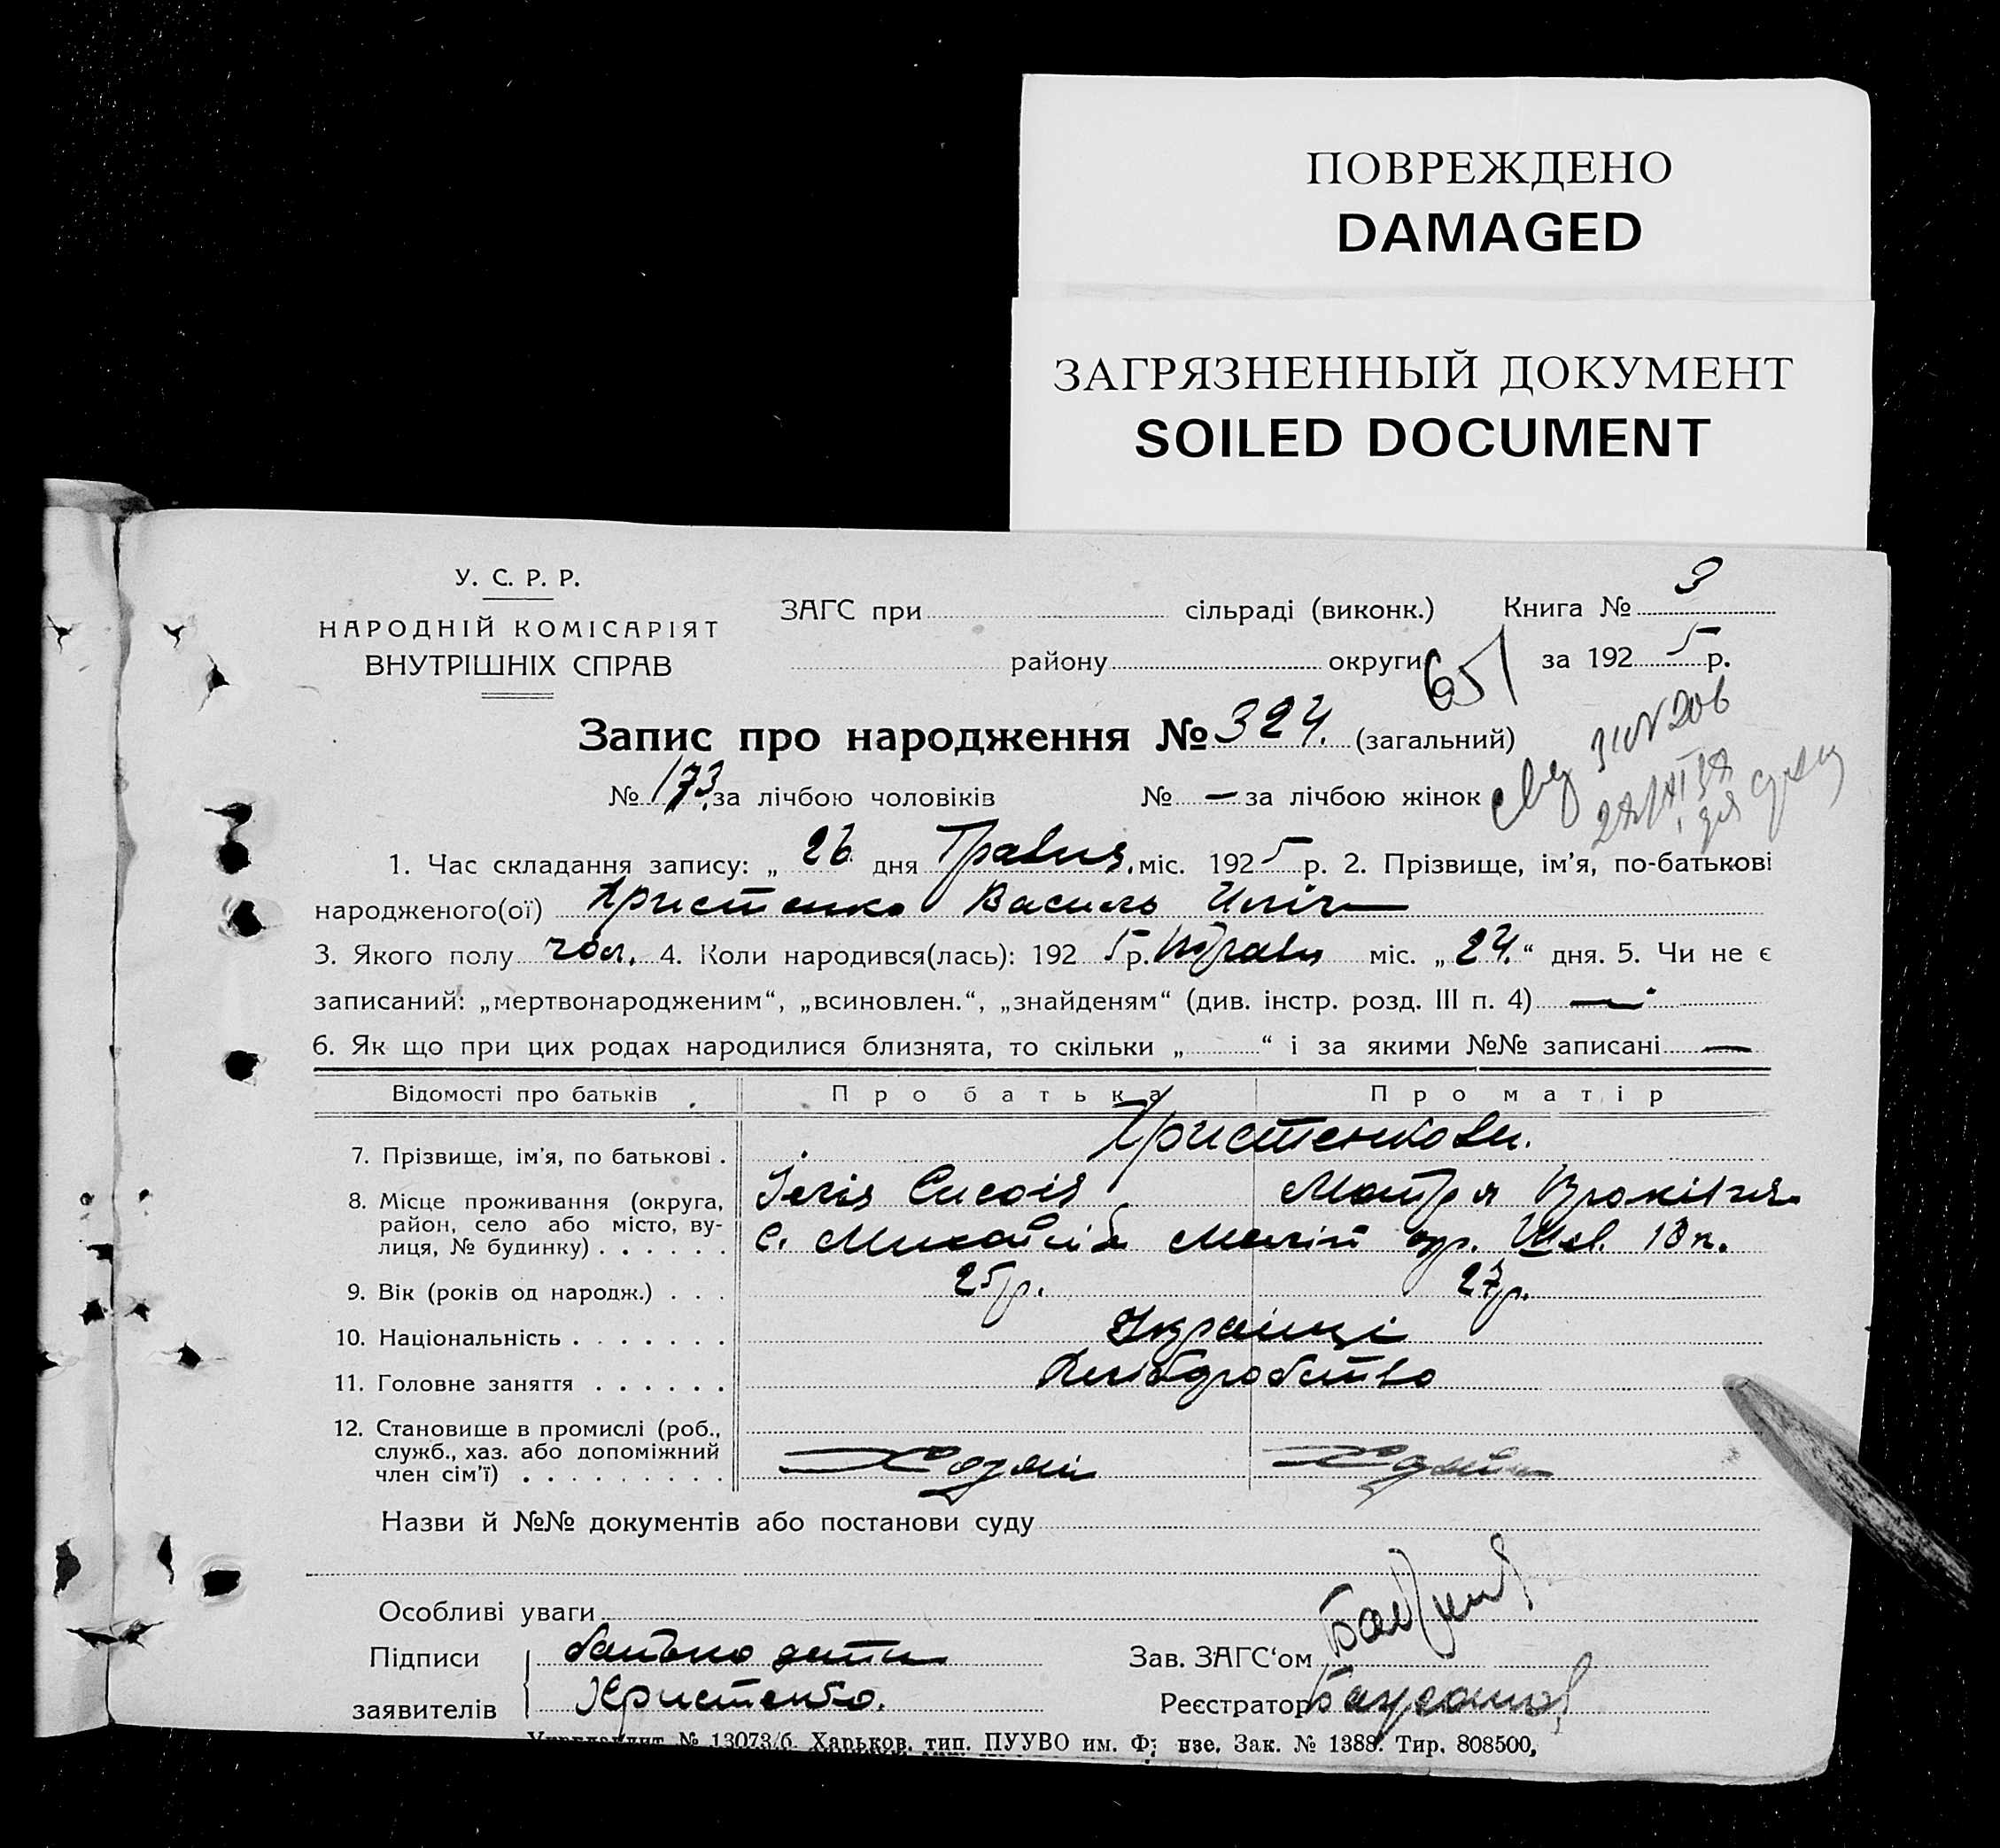 ПОВРЕЖДЕНО
DAMAGED
ЗАГРЯЗНЕННЫЙ ДОКУМЕНТ
SOILED DOCUMENT
У. С. Р. Р.
НАРОДНІЙ КОМІСАРІЯТ
ВНУТРІШНІХ СПРАВ
ЗАГС при сільраді (виконк.) Книга № 3
району округи за 1925 р.
651
Запис про народження № 324. (загальний)
№ 173. за лічбою чоловіків № — за лічбою жінок
1. Час складання запису: „ 26 дня Травня. міс. 1925 р. 2. Прізвище, ім'я, по-батькові
народженого(ої) Христенко Василь Ілліч
3. Якого полу чол. 4. Коли народився(лась): 1925 р. Травн міс. „ 24. “ дня. 5. Чи не є
записаний: „мертвонародженим“, „всиновлен.“, „знайденям“ (див. інстр. розд. III п. 4) —
6. Як що при цих родах народилися близнята, то скільки „ “ і за якими №№ записані —
Відомості про батьків Про батька Про матір
7. Прізвище, ім'я, по батькові . Христенкови.
8. Місце проживання (округа,
район, село або місто, ву-
лиця, № будинку) . . . . . .
Ілія Сисоів Мотря
с. 
9. Вік (років од народж.) . . . 25 р. 27 р.
10. Національність . . . . . . . Українці
11. Головне заняття . . . . . . Хліборобство
12. Становище в промислі (роб.,
служб., хаз. або допоміжний
член сім'ї) . . . . . . . . .
Назви й №№ документів або постанови суду
Особливі уваги
Підписи батько дети Зав. ЗАГС'ом
заявителів Христенко. Реєстратор
№ 13073/б. Харьков. тип. ПУУВО им. Зак. № 1388. Тир. 808500,